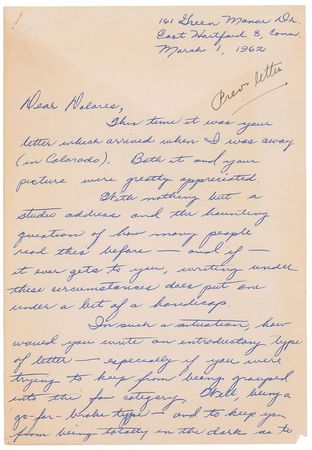 161 Green Manor Dr.
East Hartford 8, Conn.
March 1, 1962
Prev. letter
Dear Dolores,
This time it was your
letter which arrived when I was away
(in Colorado). Both it and your
picture were greatly appreciated.
With nothing but a
studio address and the haunting
question of how many people
read this before — and if —
it ever gets to you, writing under
these circumstances does put one
under a bit of a handicap.
In such a situation, how
would you write an introductory type
of letter — especially if you were
trying to keep from being grouped
into the fan category. Well, being a
go-for-broke type — and to keep you
from being totally in the dark as to